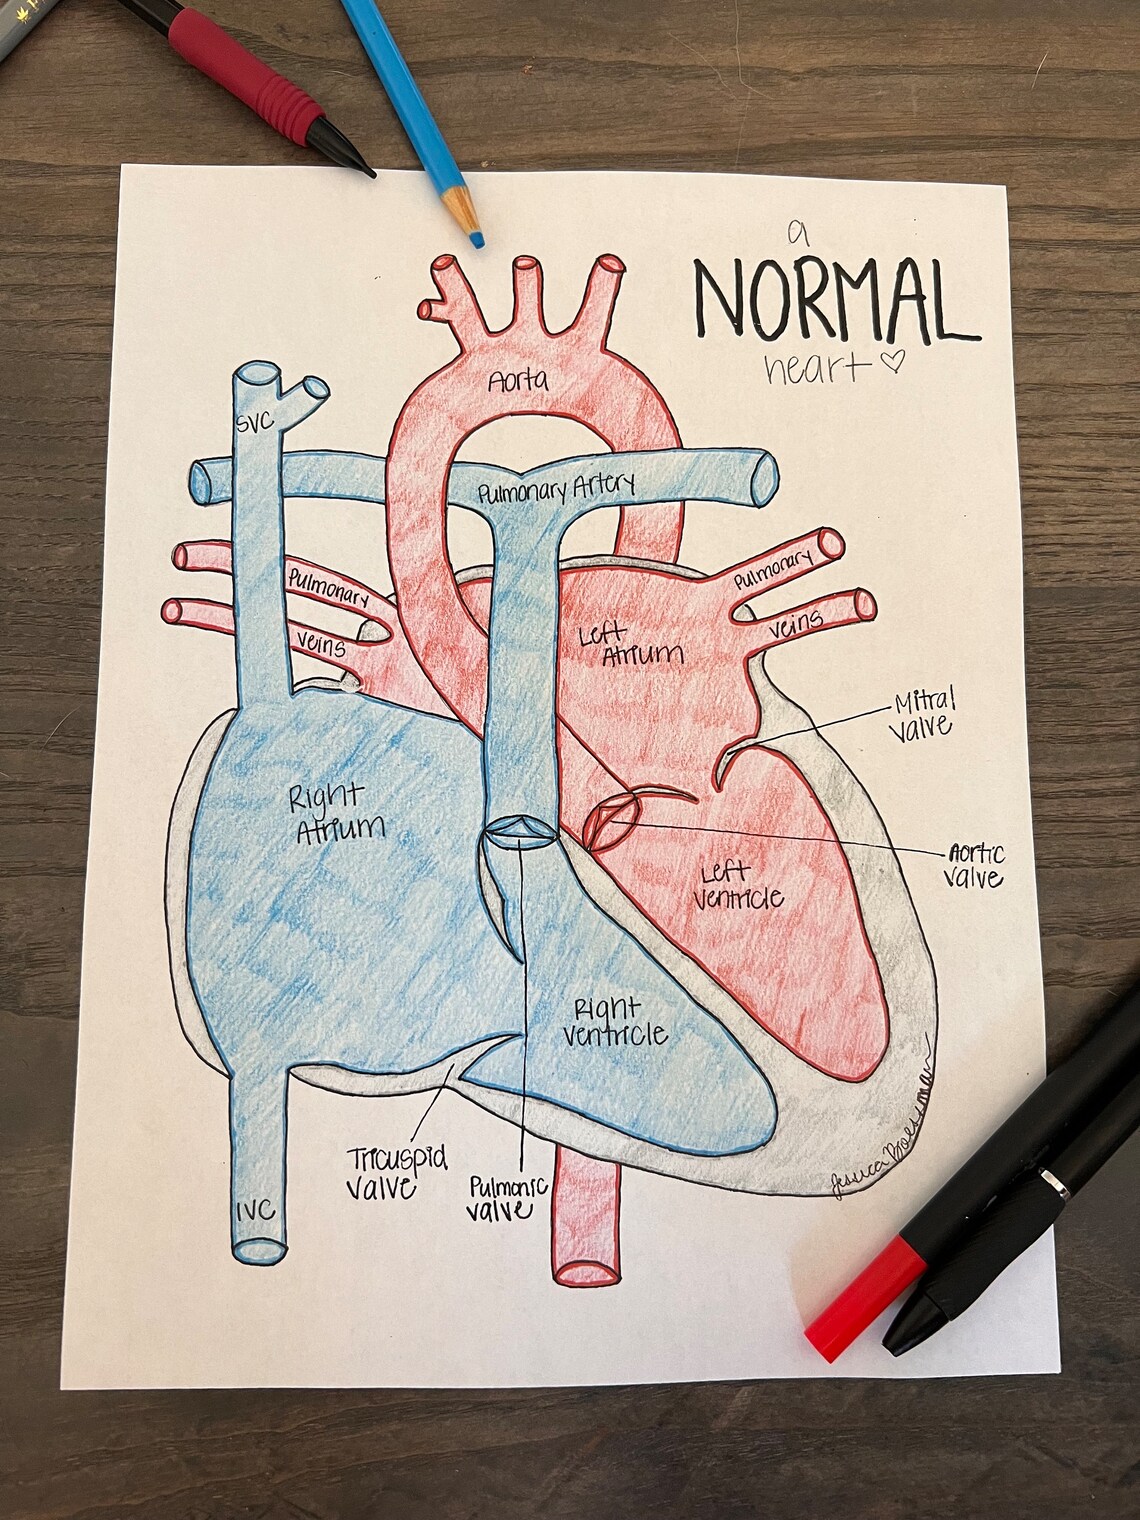 a
NORMAL
heart
Aorta
SVC
Pulmonary Artery
Pulmonary
veins
Pulmonary
veins
Left
Atrium
Mitral
valve
Right
Atrium
Aortic
valve
Left
ventricle
Right
ventricle
Tricuspid
valve
Pulmonic
valve
IVC
Jessica Boessman